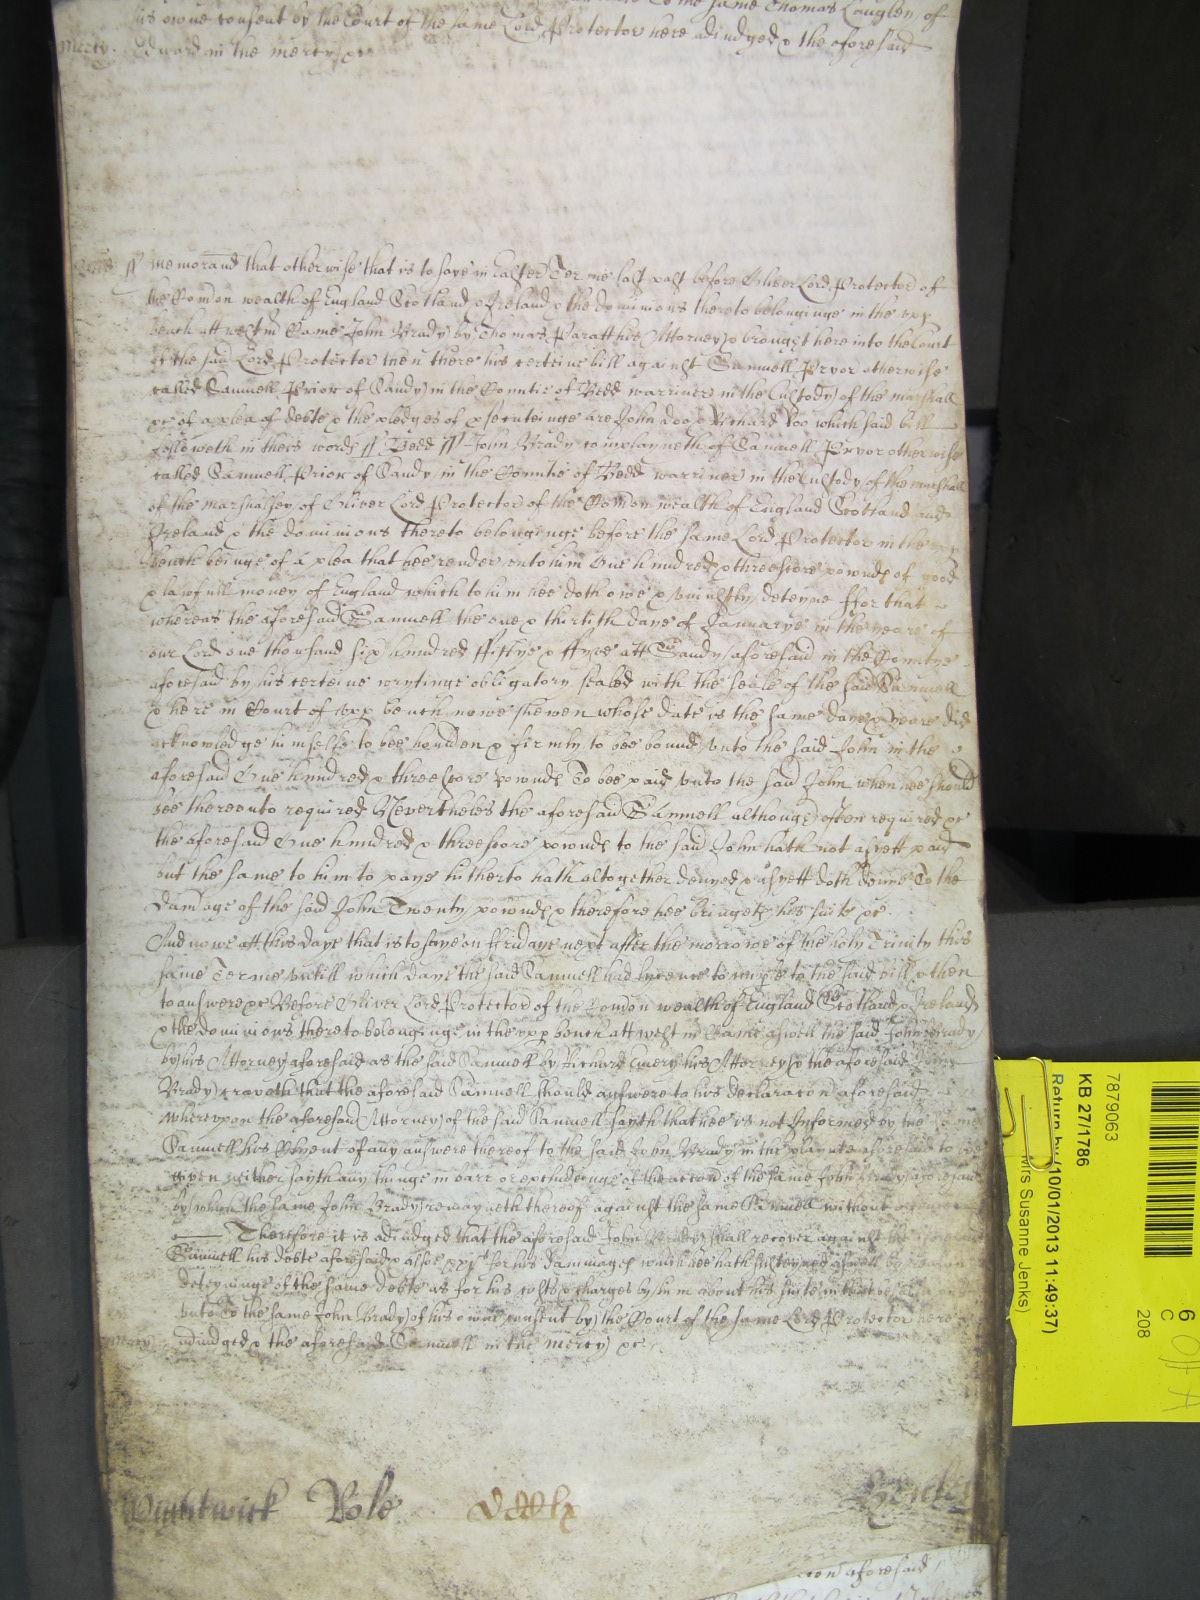 to the same Thomas Langley of
his owne consent by the Court of the same Lord Protector here adiudged & the aforesaid
Mercy. Edward in the mercy &c
Bedd // Memorand that otherwise that is to saye in Easter Terme last past before Oliver Lord Protector of
the Comon wealth of England Scotland & Ireland & the dominions thereto belonginge in the upp
bench att westm Came John Brady by Thomas Paratt his Attorney & brought here into the Court
of the said Lord Protector then there his certeine bill against Samuell Pryor otherwise
called Samuell Prior of Sandy in the Countie of Bedd warriner in the Custody of the marshall
&c of a plea of debte & the pledges of p'secuteinge are John Doo & Richard Roo which said bill
followeth in theis words // Bedd // John Brady complayneth of Samuell Pryor otherwise
called Samuell Prior of Sandy in the Countie of Bedd warriner in the Custody of the marshall
of the marshalsey of Oliver Lord Protector of the Comon wealth of England Scotland and
Ireland & the dominions thereto belonginge before the same Lord Protector in the upp
bench beinge of a plea that hee render unto him One hundred & threescore pownds of good
& lawfull money of England which to him hee doth owe & uniustly deteyne ffor that
whereas the aforesaid Samuell the one & thirtith daye of Januarye in the yeare of
our Lord one thousand six hundred ffiftye & ffyve att Sandy aforesaid in the Countye
aforesaid by his certeine wrytinge obligatory sealed with the seale of the said Samuell
& here in Court of upp bench nowe shewen whose date is the same daye & yeare did
acknowledge himselfe to bee houlden & firmly to bee bound unto the said John in the
aforesaid One hundred & threescore pownds To bee paid unto the said John when hee should
bee thereunto required Nevertheles the aforesaid Samuell although often required &c
the aforesaid One hundred & threescore pownds to the said John hath not as yett paid
but the same to him to paye hitherto hath altogether denyed & as yett doth denie To the
damage of the said John Twenty pownds & therefore hee bringeth his suite &c
And nowe att this daye that is to saye on ffridaye next after the morrowe of the holy Trinity this
same Terme untill which daye the said Samuell had lycence to imple to the said bill & then
to answere &c Before Oliver Lord Protector of the Comon wealth of England Scotland & Ireland
& the dominions thereto belonginge in the upp bench att westm Came aswell the said John Brady
by his Attorney aforesaid as the said Samuell by Richard Avery his Attorney & the aforesaid John
Brady craveth that the aforesaid Samuell should answere to his declaracon aforesaid
whereupon the aforesaid Attorney of the said Samuell sayth that hee is not Informed by the same
Samuell his Clyent of any answere thereof to the said John Brady in the playnte aforesaid to bee
given neither sayth any thinge in barr or excludeinge of the accon of the same John Brady aforesaid
by which the same John Brady remayneth thereof against the same Samuell without
Therefore it is adiudged that the aforesaid John Brady shall recover against the
Samuell his debte aforesaid & alsoe for his dammages which hee hath susteyned aswell by
deteyninge of the same debte as for his costs & charges by him about his suite in that
unto to the same John Brady of his owne consent by the Court of the same Lord Protector here
Mercy adiudged & the aforesaid Samuell in the mercy &c
Wightwick Role
con aforesaid
7879063
KB 27/1786
Return by (10/01/2013 11:49:37)
Mrs Susanne Jenks)
6
C
208
Off A